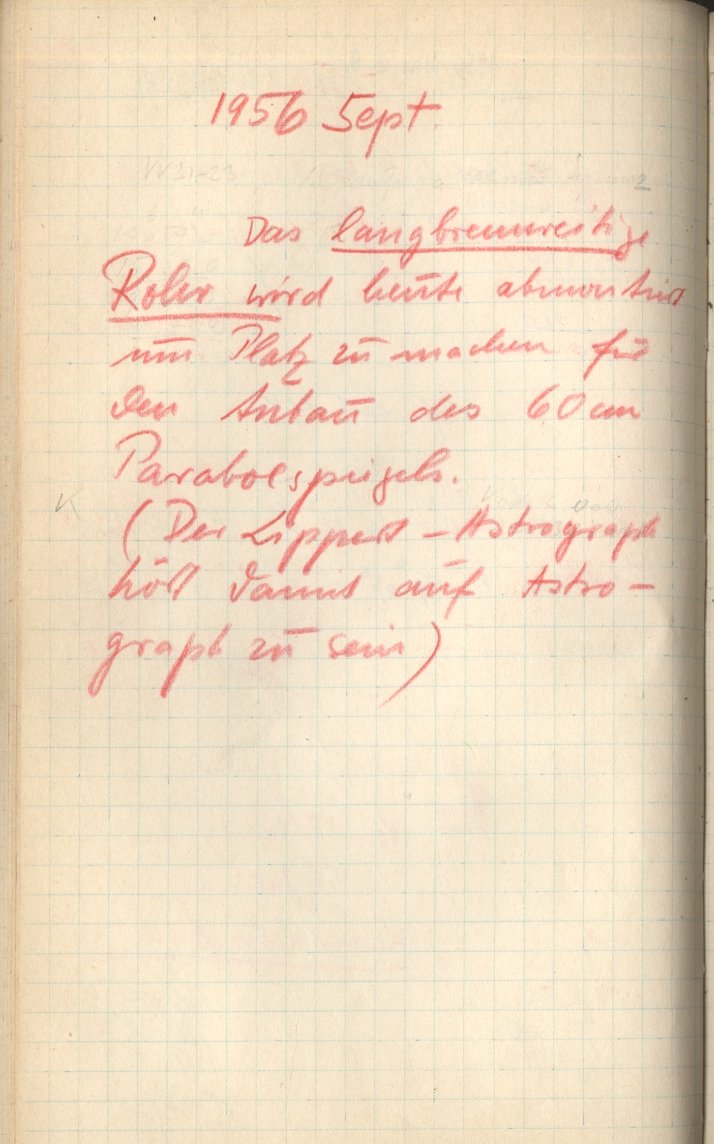 1956 Sept.
Das langbrennweitige
Rohr wird heute abmontiert
um Platz zu machen für
den Anbau des 60 cm
Parabolspiegels.
(Der Lippert-Astrograph
hört damit auf Astro-
graph zu sein)